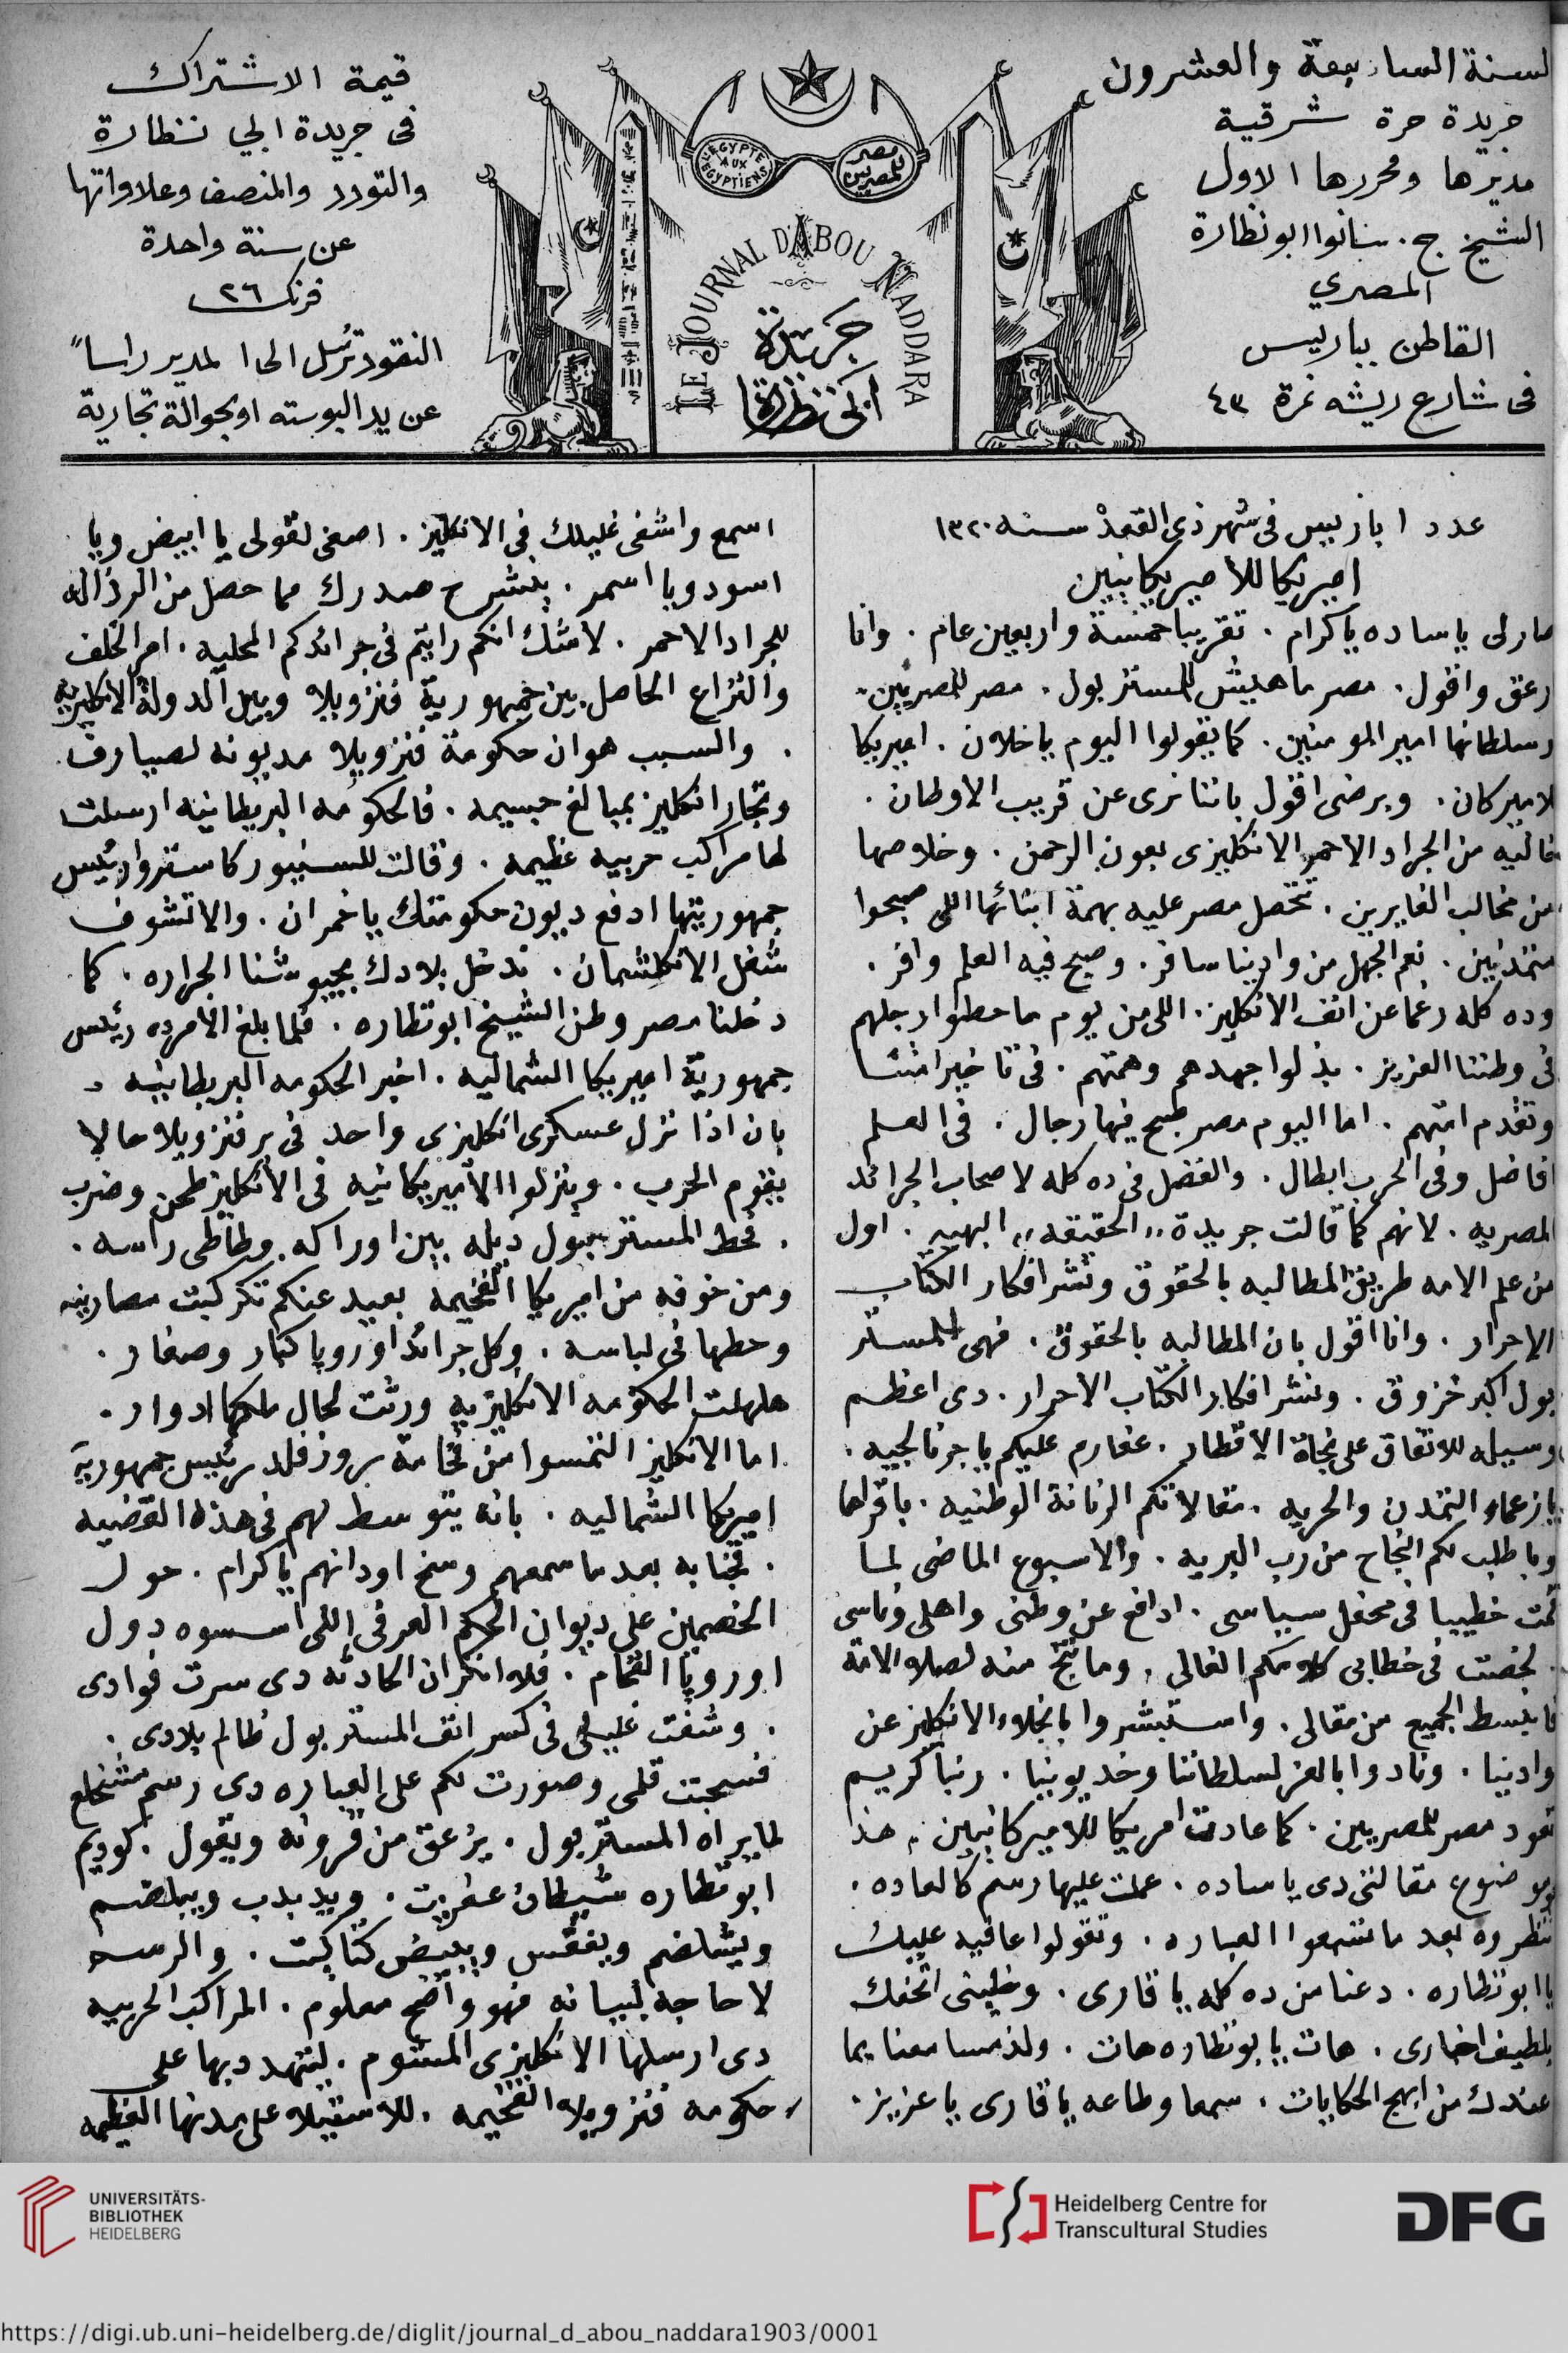 السنة السابعة والعشرون
جريدة حرة شرقية
مديرها ومحررها الاول
الشيخ ج. سانوا ابونظارة
المصري
القاطن بباريس
فى شارع ريشه نمرة ٤٣
مصر
للمصريين
L'EGYPTE
AUX
EGYPTIENS
LE JOURNAL D'ABOU NADDARA
جريدة
ابى نظارة
قيمة الاشتراك
فى جريدة ابي نظارة
والتودد والمنصف وعلاواتها
عن سنة واحدة
فرنك ٢٦
النقود ترسل الى المدير راساً
عن يد البوسته او بحوالة تجارية
عدد ١ باريس فى شهر ذى القعدة سنه ١٣٢٠
اميريكا للاميريكانيين
صارلى ياساده ياكرام . تقريبا خمسة واربعين عام . وانا
زعق واقول . مصر ماهيش للمستر بول . مصر للمصريين .
وسلطانها امير المومنين . كما يقولوا اليوم ياخلان . اميريكا
لاميركان . وبرضى اقول باننا نرى عن قريب الاوطان .
خاليه من الجراد الاحمر الانكليزى بعون الرحمن . وخلاصها
من مخالب الغايرين . تحصل مصر عليه بهمة ابنائها اللى صبحوا
متمدنين . نعم الجهل من وادينا سافر . وصبح فيه العلم وافر .
وده كله رغما عن انف الانكليز . اللى من يوم ما حطوا رجلهم
فى وطننا العزيز . بذلوا جهدهم وهمتهم . فى تاخير امتنا
وتقدم امتهم . اما اليوم مصر صبح فيها رجال . فى العلم
افاضل وفى الحرب ابطال . والفضل فى ده كله لاصحاب الجرائد
المصريه . لانهم كما قالت جريدة ,, الحقيقه ,, البهيه . اول
من علم الامه طريق المطالبه بالحقوق ونشر افكار الكتاب
الاحرار . وانا اقول بان المطالبه بالحقوق . فهى للمستر
بول اكبر خزوق . ونشر افكار الكتاب الاحرار . دى اعظم
وسيله للاتفاق على نجاة الاقطار . عفارم عليكم ياجرنالجيه .
يازعماء التمدن والحريه . مقالاتكم الرنانة الوطنيه . باقراها
وباطلب لكم النجاح من رب البريه . والاسبوع الماضى لما
قمت خطيبا فى محفل سياسى . ادافع عن وطنى واهلى وناسى
. لخصت فى خطابى كلامكم الغالى . وما نتج منه لصلاح الامة
فانبسط الجميع من مقالى . واستبشروا بانجلاء الانكليز عن
وادينا . ونادوا بالعز لسلطاننا وخديوينا . ربنا كريم
تعود مصر للمصريين . كما عادت امريكا للاميركانيين . هذا
موضوع مقالتى دى ياساده . عملت عليها رسم كالعاده .
تنظروه بعد ما تسمعوا العباره . وتقولوا عافيه عليك
يا ابونظاره . دعنا من ده كله ياقارى . وخلينى اتحفك
بلطيف اخبارى . هات يابونظاره هات . ولذ مسامعنا بما
عندك من ابهج الحكايات . سمعا وطاعه ياقارى ياعزيز .
اسمع واشفى غليلك فى الانكليز . اصغى لقولى يا ابيض ويا
اسود ويا اسمر . ينشرح صدرك مما حصل من الرذاله
للجراد الاحمر . لاشك انكم رايتم فى جرائدكم المحليه . امر الخلف
والنزاع الحاصل بين جمهورية فنزويلا وبين الدولة الانكليزيه
. والسبب هو ان حكومة فنزويلا مديونه لصيارف
وتجار انكليز بمبالغ جسيمه . فالحكومه البريطانيه ارسلت
لها مراكب حربيه عظيمه . وقالت للسنيور كاسترو رئيس
جمهوريتها ادفع ديون حكومتك ياخمران . والا تشوف
شغل الانكلشمان . ندخل بلادك بجيوشنا الجراره . كما
دخلنا مصر وطن الشيخ ابونظاره . فلما بلغ الامر ده رئيس
جمهورية اميريكا الشماليه . اخبر الحكومه البريطانيه .
بان اذا نزل عسكرى انكليزى واحد فى بر فنزويلا حالا
يقوم الحرب . وينزلوا الاميريكانيه فى الانكليز طحن وضرب
. فحط المستر بول ديله بين اوراكه وطاطى راسه .
ومن خوفه من اميريكا الفخيمه بعيد عنكم تكركبت مصارينه
وحطها فى لباسه . وكل جرائد اوروپا كبار وصغار .
هلهلت الحكومه الانكليزيه ورثت لحال ملكها ادوار .
اما الانكليز التمسوا من فخامة روزفلد رئيس جمهورية
اميريكا الشماليه . بانه يتوسط لهم فى هذه القضيه
. فجنابه بعد ما سمعهم وسخ اودانهم ياكرام . حول
الخصمين على ديوان الحكم العرفى اللى اسسوه دول
اوروپا الفخام . فلا انكر ان الحادثه دى سرت فوادى
. وشفت غليلى فى كسر انف المستر بول ظالم بلادى .
فسحبت قلمى وصورت لكم على العباره دى رسم مشخلع
لما يراه المستر بول . يزعق من قرونه ويقول . كوديم
ابونظاره شيطان عفريت . ويدبدب ويبلضم
ويشلضم ويفقس ويبيض كتاكيت . والرسم
لا حاجه لبيانه فهو واضح معلوم . المراكب الحربيه
دى ارسلها الانكليزى المشوم . ليتهدد بها على
حكومه فنزويلا الفخيمه . للاستيلا على مدنها العظيمه
UNIVERSITÄTS-
BIBLIOTHEK
HEIDELBERG
Heidelberg Centre for
Transcultural Studies
DFG
https://digi.ub.uni-heidelberg.de/diglit/journal_d_abou_naddara1903/0001